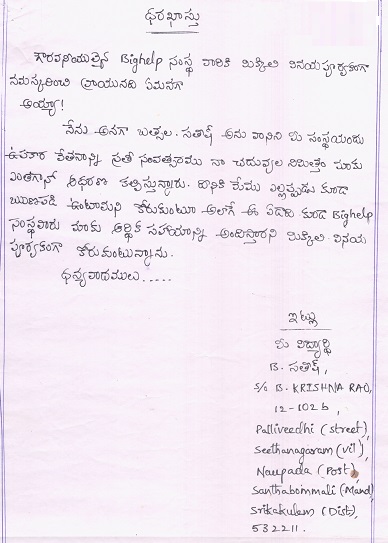 ధరఖాస్తు
గౌరవనీయులైన Bighelp సంస్థ వారికి మిక్కిలి వినయపూర్వకంగా
నమస్కరించి వ్రాయునది ఏమనగా
అయ్యా!
నేను అనగా బలసల. సతీష్ అను వానిని మీ సంస్థయందు
ఉపకార వేతనాన్ని ప్రతి సంవత్సరము నా చదువుల నిమిత్తం మాకు
ఎంతగానో ఆధరణ కల్పిస్తున్నారు. దానికి మేము ఎల్లప్పుడు కూడా
ఋణపడి ఉంటామని కోరుకుంటూ అలాగే ఈ ఏడాది కూడా Bighelp
సంస్థవారు మాకు ఆర్థిక సహాయాన్ని అందిస్తారని మిక్కిలి వినయ
పూర్వకంగా కోరుకుంటున్నాను.
ధన్యవాదములు.....
ఇట్లు
మీ విద్యార్థి
B. సతీష్,
S/o B. KRISHNA RAO,
12-102B,
Palliveedhi (street),
Seethanagaram (Vil),
Naupada (Post),
Santhabommali (Mand),
Srikakulam (Dist),
532211.